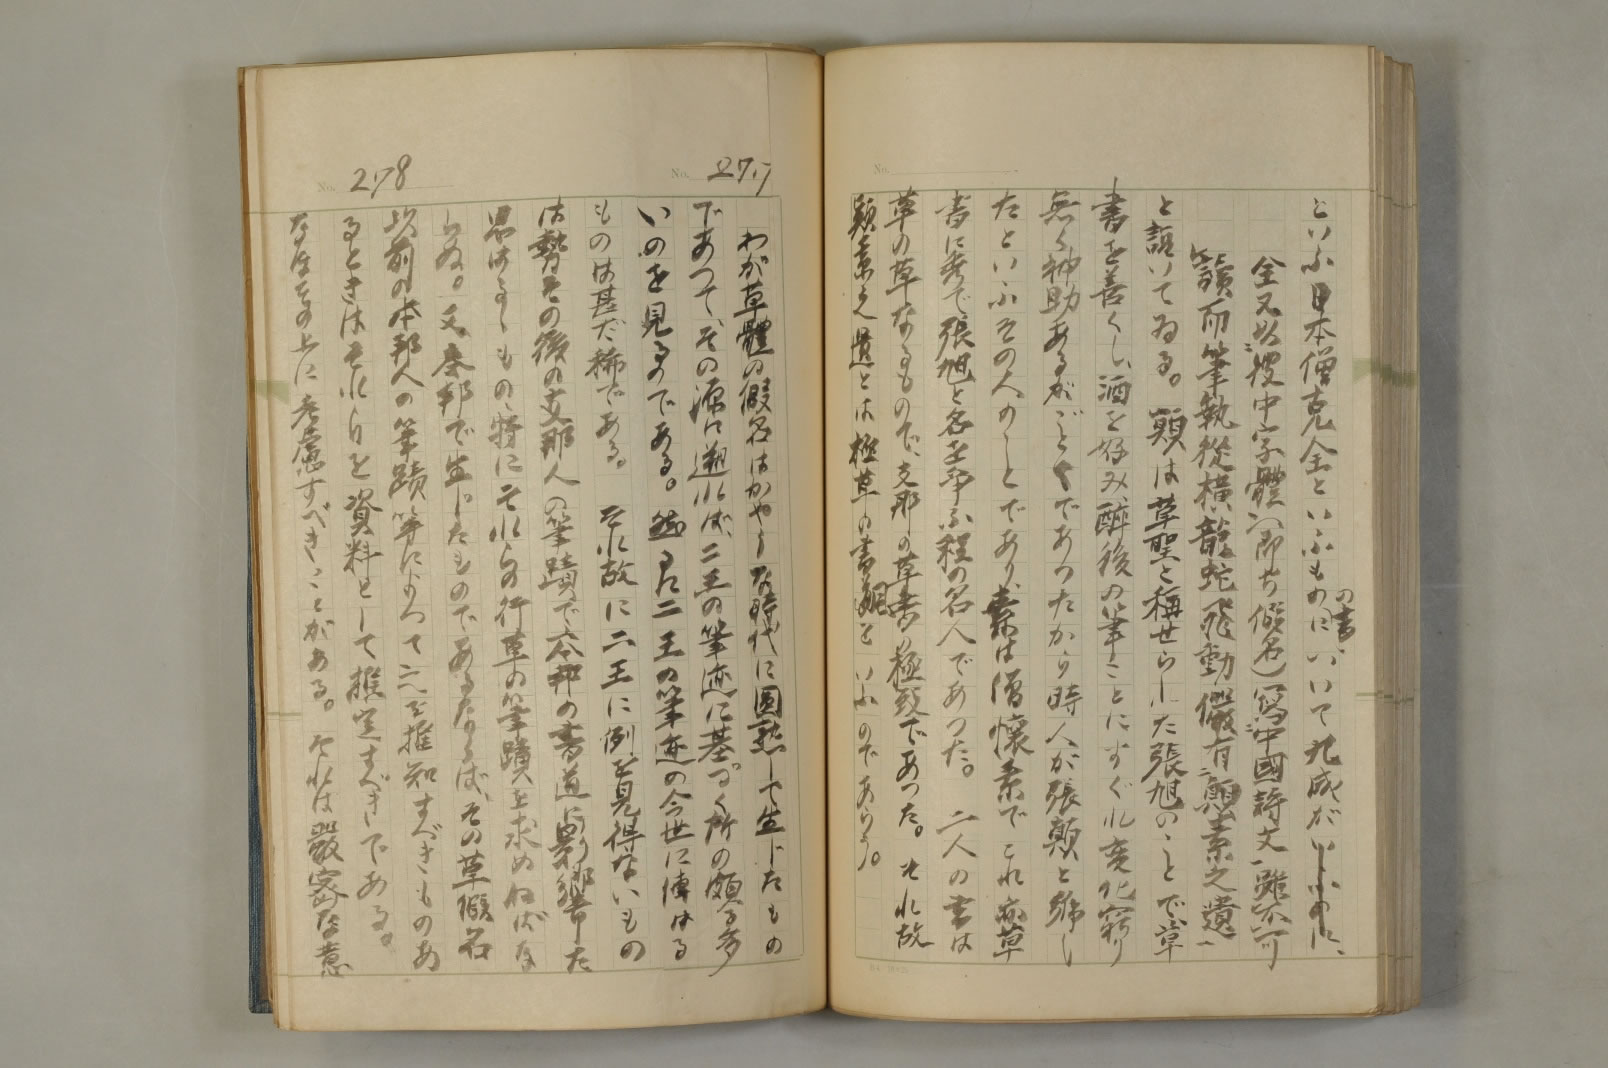 といふ日本僧克全といふものの書にいいて九成がいふのに、
全又以彼中字體(即ち假名)寫中國詩文、雖不可
讀而筆執從横龍蛇飛動儼有顚素之遺、
と語いてゐる。顚は草聖と稱せられた張旭のことで草
書を善くし、酒を好み醉後の筆ことにすぐれ變化窮り
無く神助あるがごとくであつたから時人が張顚と號し
たといふその人のことであり、素は僧懷素でこれ亦草
書に秀で張旭と名を爭ふ程の名人であつた。二人の書は
草の草なるもので、支那の草書の極致であつた。それ故
顚素之遺とは極草の書觀をいふのであらう。
No.
No. 277
わが草體の假名はかやうな時代に圓熟して生じたもの
であつて、その源に遡れば、二王の筆迹に基づく所の頗る多
いのを見るのである。然るに二王の筆迹の今世に傳はる
ものは甚だ稀である。それ故に二王に例を見得ないもの
は勢その後の支那人の筆蹟で本邦の書道に影響した
と思はるゝもの、特にそれらの行草の筆蹟を求めねばな
らぬ。又本邦で生じたものであるならば、その草假名
以前の本邦人の筆蹟等によつて之を推知すべきものあ
るときはそれらを資料として推定すべきである。
なほその上に考慮すべきことがある。それは嚴密な意
No. 278